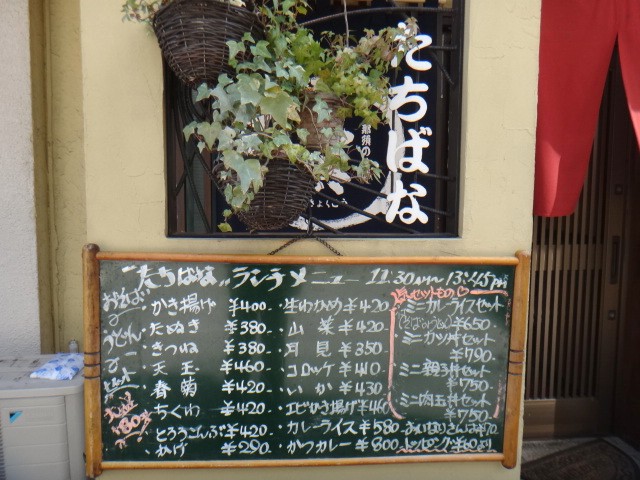 たちばな
那須の
きょくこう
"たちばな" ランチメニュー 11:30AM〜13:45PM
おそば
うどん
・かき揚げ ¥400
・たぬき ¥380
・きつね ¥380
・天玉 ¥460
・春菊 ¥420
・ちくわ ¥420
・とろろこんぶ ¥420
・かけ ¥290
・生わかめ ¥420
・山菜 ¥420
・月見 ¥350
・コロッケ ¥410
・いか ¥430
・エビかき揚げ ¥460
・カレーライス ¥580
・かつカレー ¥800
・ミニカレーライスセット
¥650
・ミニカツ丼セット
¥790
・ミニ親子丼セット
¥750
・ミニ肉玉丼セット
¥750
・おいなりさんは¥70
・トッピング¥60より